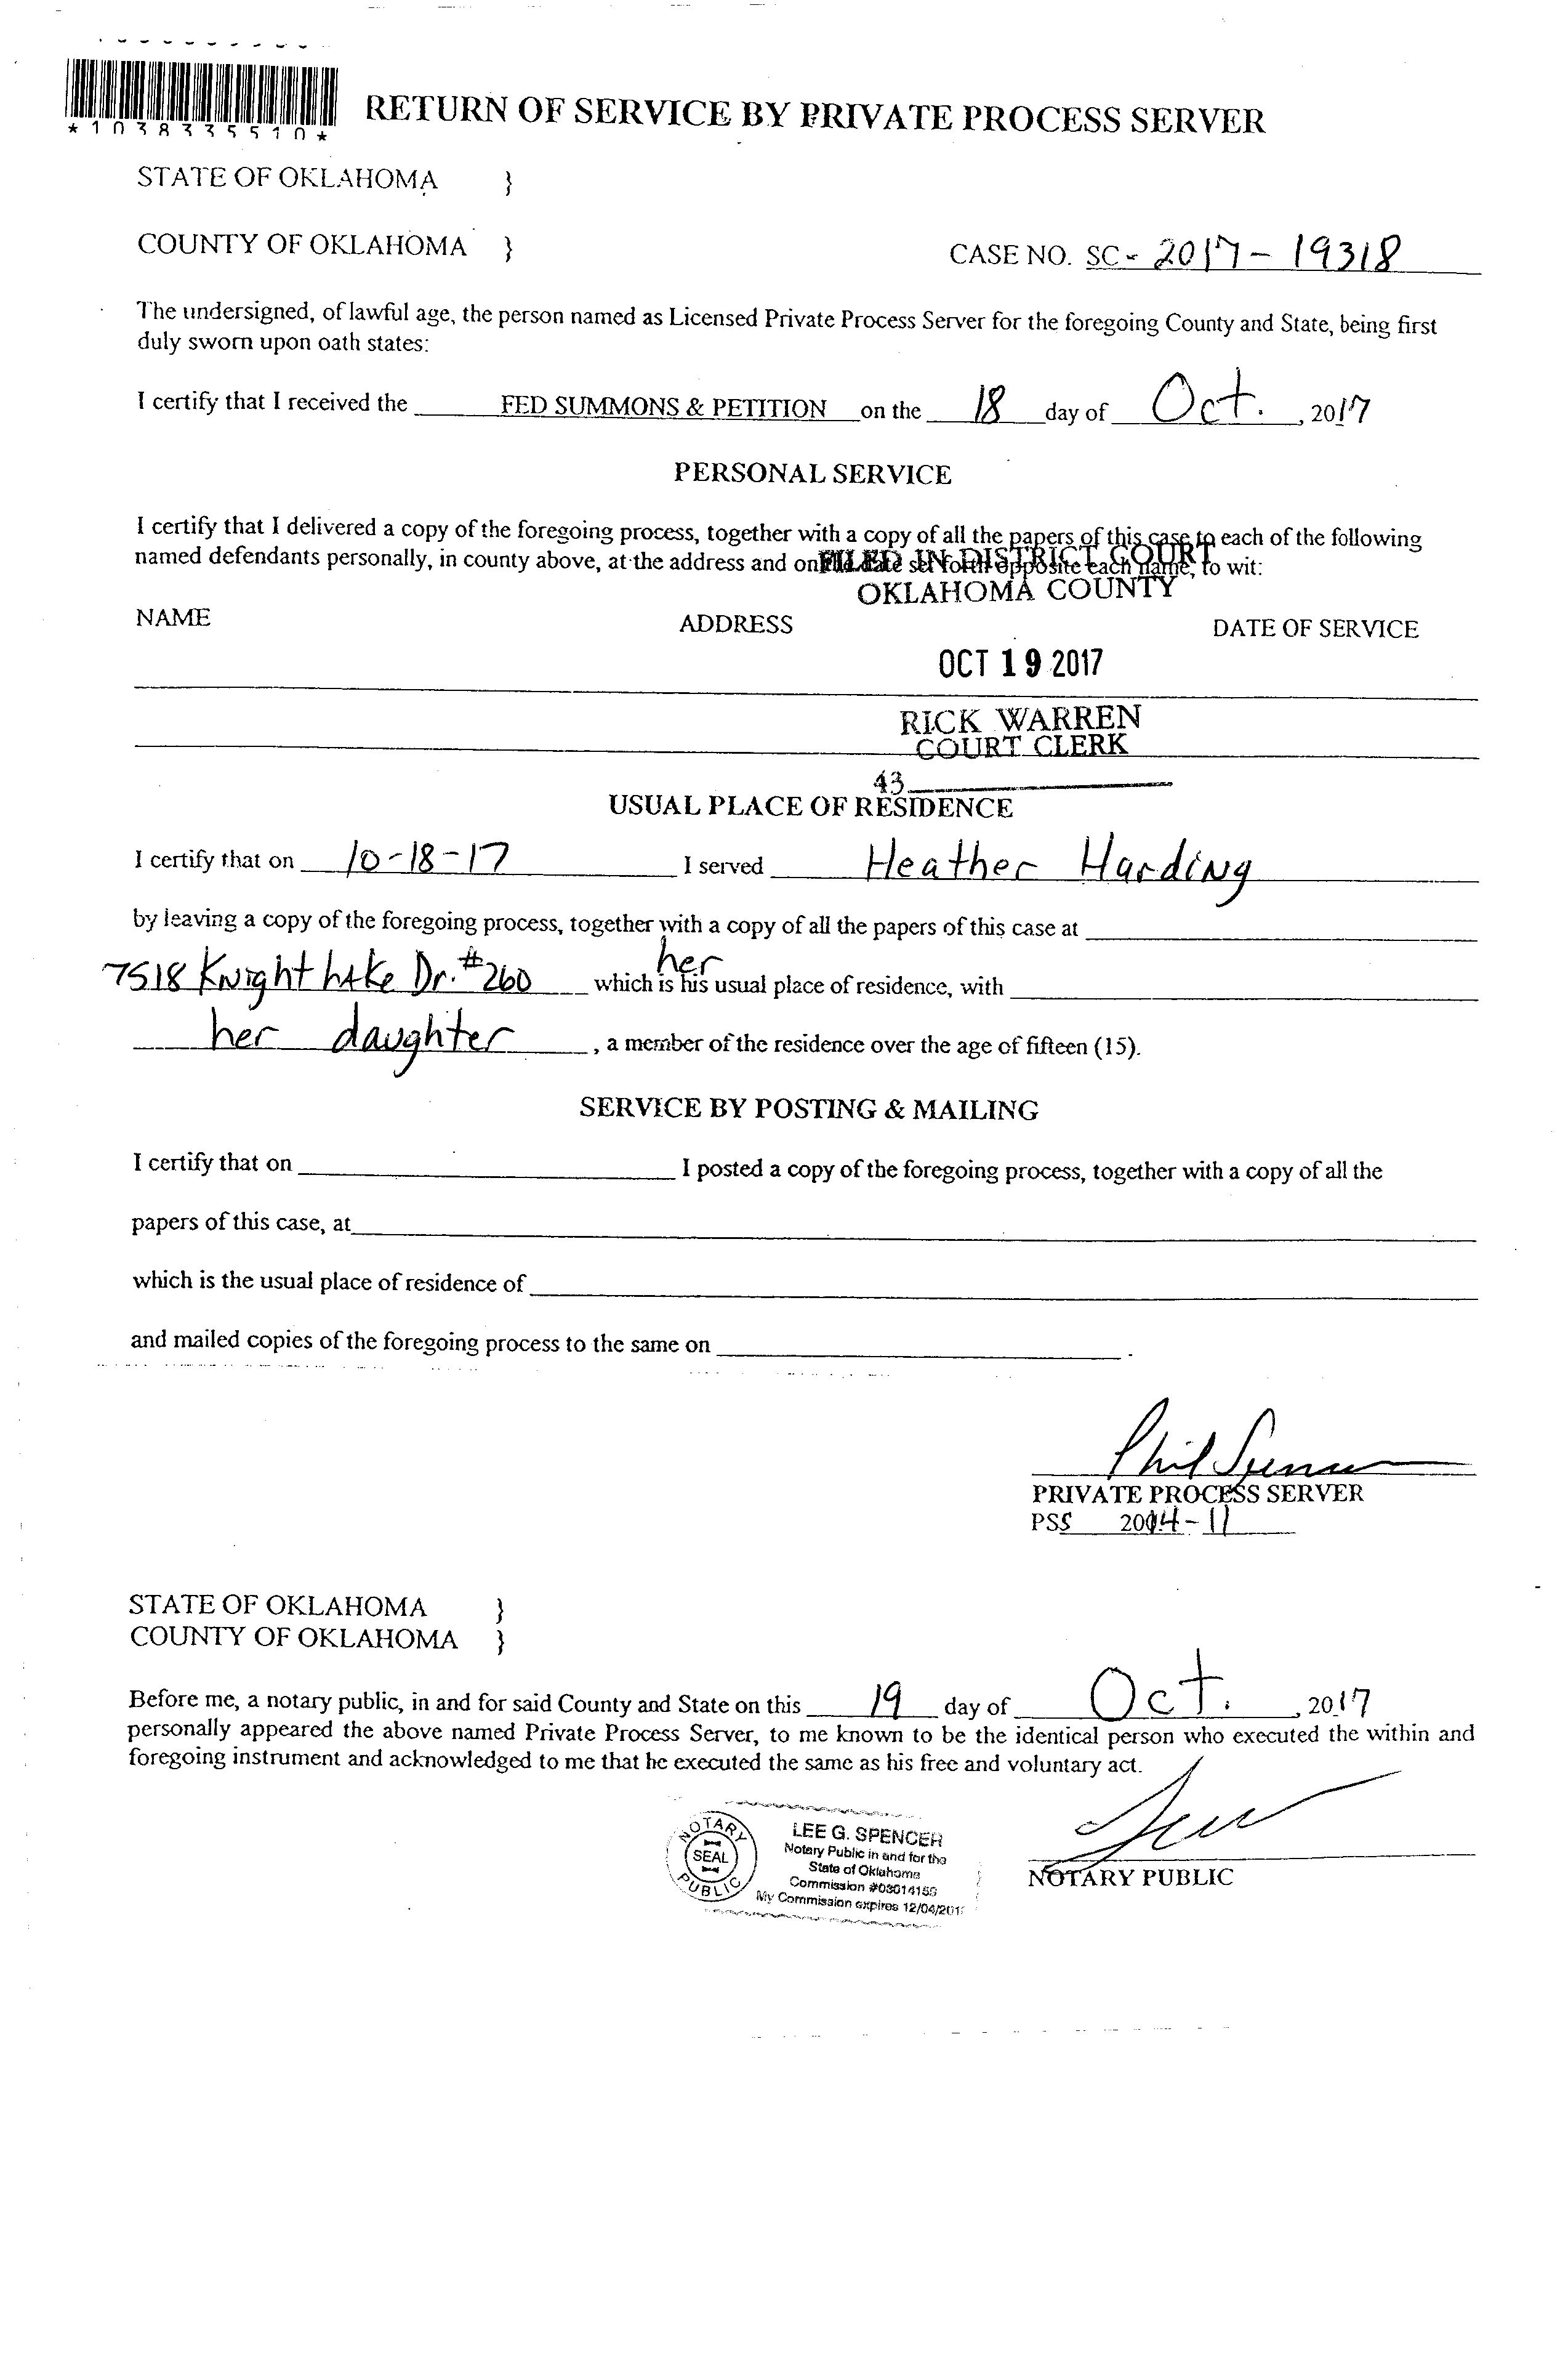 *1038335510*
RETURN OF SERVICE BY PRIVATE PROCESS SERVER
STATE OF OKLAHOMA }
COUNTY OF OKLAHOMA }
CASE NO. SC - 2017 - 19318
The undersigned, of lawful age, the person named as Licensed Private Process Server for the foregoing County and State, being first
duly sworn upon oath states:
I certify that I received the FED SUMMONS & PETITION on the 18 day of Oct. , 2017
PERSONAL SERVICE
I certify that I delivered a copy of the foregoing process, together with a copy of all the papers of this case to each of the following
named defendants personally, in county above, at the address and on the date set forth opposite each name, to wit:
FILED IN DISTRICT COURT
OKLAHOMA COUNTY
NAME ADDRESS DATE OF SERVICE
OCT 19 2017
RICK WARREN
COURT CLERK
43
USUAL PLACE OF RESIDENCE
I certify that on 10-18-17 I served Heather Harding
by leaving a copy of the foregoing process, together with a copy of all the papers of this case at
her
7518 Knight Lake Dr. #260 which is his usual place of residence, with
her daughter , a member of the residence over the age of fifteen (15).
SERVICE BY POSTING & MAILING
I certify that on I posted a copy of the foregoing process, together with a copy of all the
papers of this case, at
which is the usual place of residence of
and mailed copies of the foregoing process to the same on .
Phil Spencer
PRIVATE PROCESS SERVER
PSS 2014-11
STATE OF OKLAHOMA }
COUNTY OF OKLAHOMA }
Before me, a notary public, in and for said County and State on this 19 day of Oct. , 2017
personally appeared the above named Private Process Server, to me known to be the identical person who executed the within and
foregoing instrument and acknowledged to me that he executed the same as his free and voluntary act.
NOTARY PUBLIC
SEAL
LEE G. SPENCER
Notary Public in and for the
State of Oklahoma
Commission #03014155
My Commission expires 12/04/201
NOTARY PUBLIC